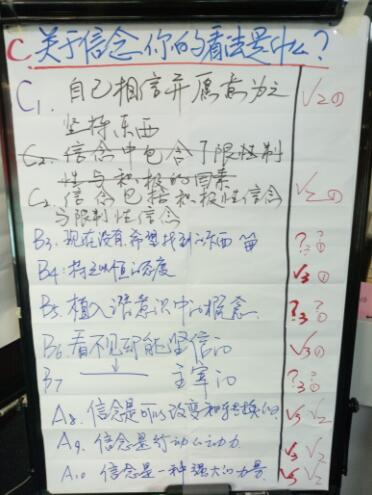 C. 关于信念,你的看法是什么?
C1. 自己相信并愿意为之 √2①
坚持东西
C2. 信念中包含了限制
性与积极的因素
C2. 信念包括积极性信念 √2①
与限制性信念
B3. 现在没有,希望找到的东西 ?3①
B4: 持之以恒的态度 √3①
B5. 植入潜意识中的概念 ?3?①
B6 看不见却能坚信的 √3①
B7 主宰的 ?3①
A8. 信念是可以改变和转换的 √3 √2
A9. 信念是行动的动力 √3 √2
A10 信念是一种强大的力量 √3 √2